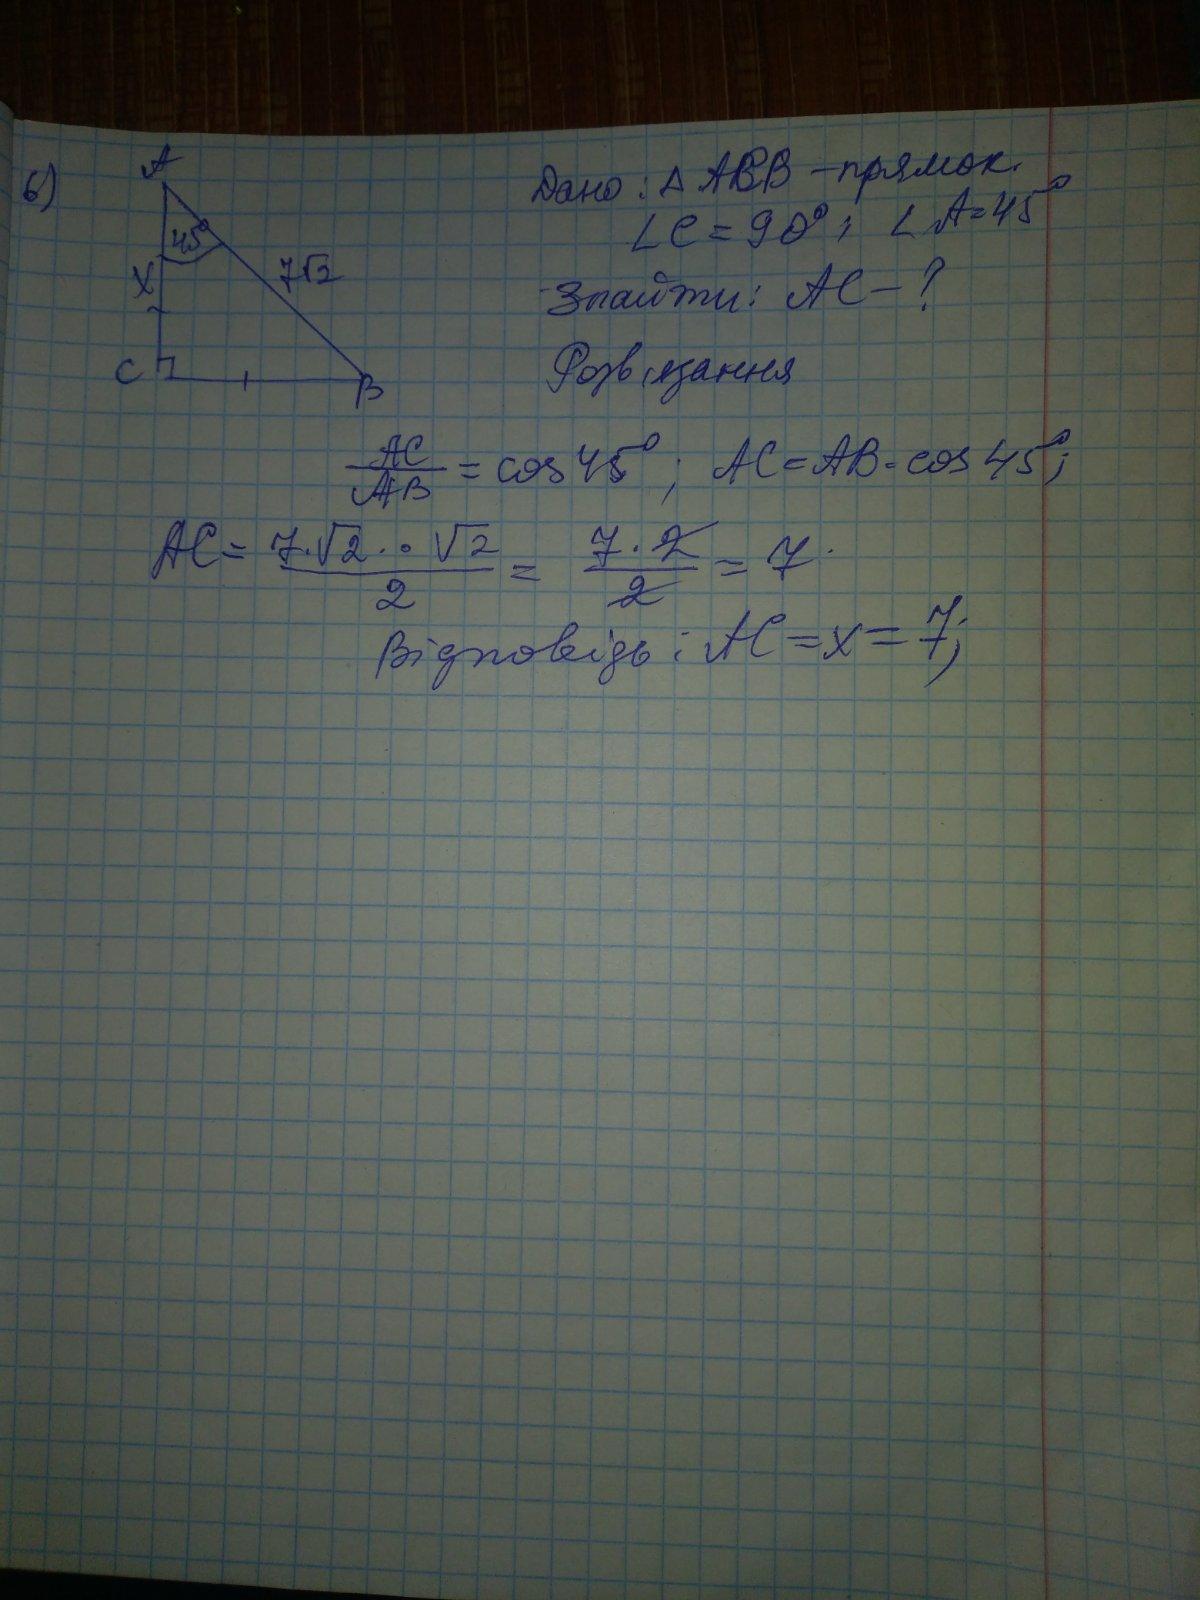 б)
A
45°
X
7√2
C
B
Дано: △ ACB - прямок.
∠C = 90°; ∠A = 45°
Знайти: AC - ?
Розв'язання
AC/AB = cos 45°; AC = AB · cos 45°;
AC = 7·√2 · · √2 / 2 = 7 · 2 / 2 = 7.
Відповідь: AC = x = 7;